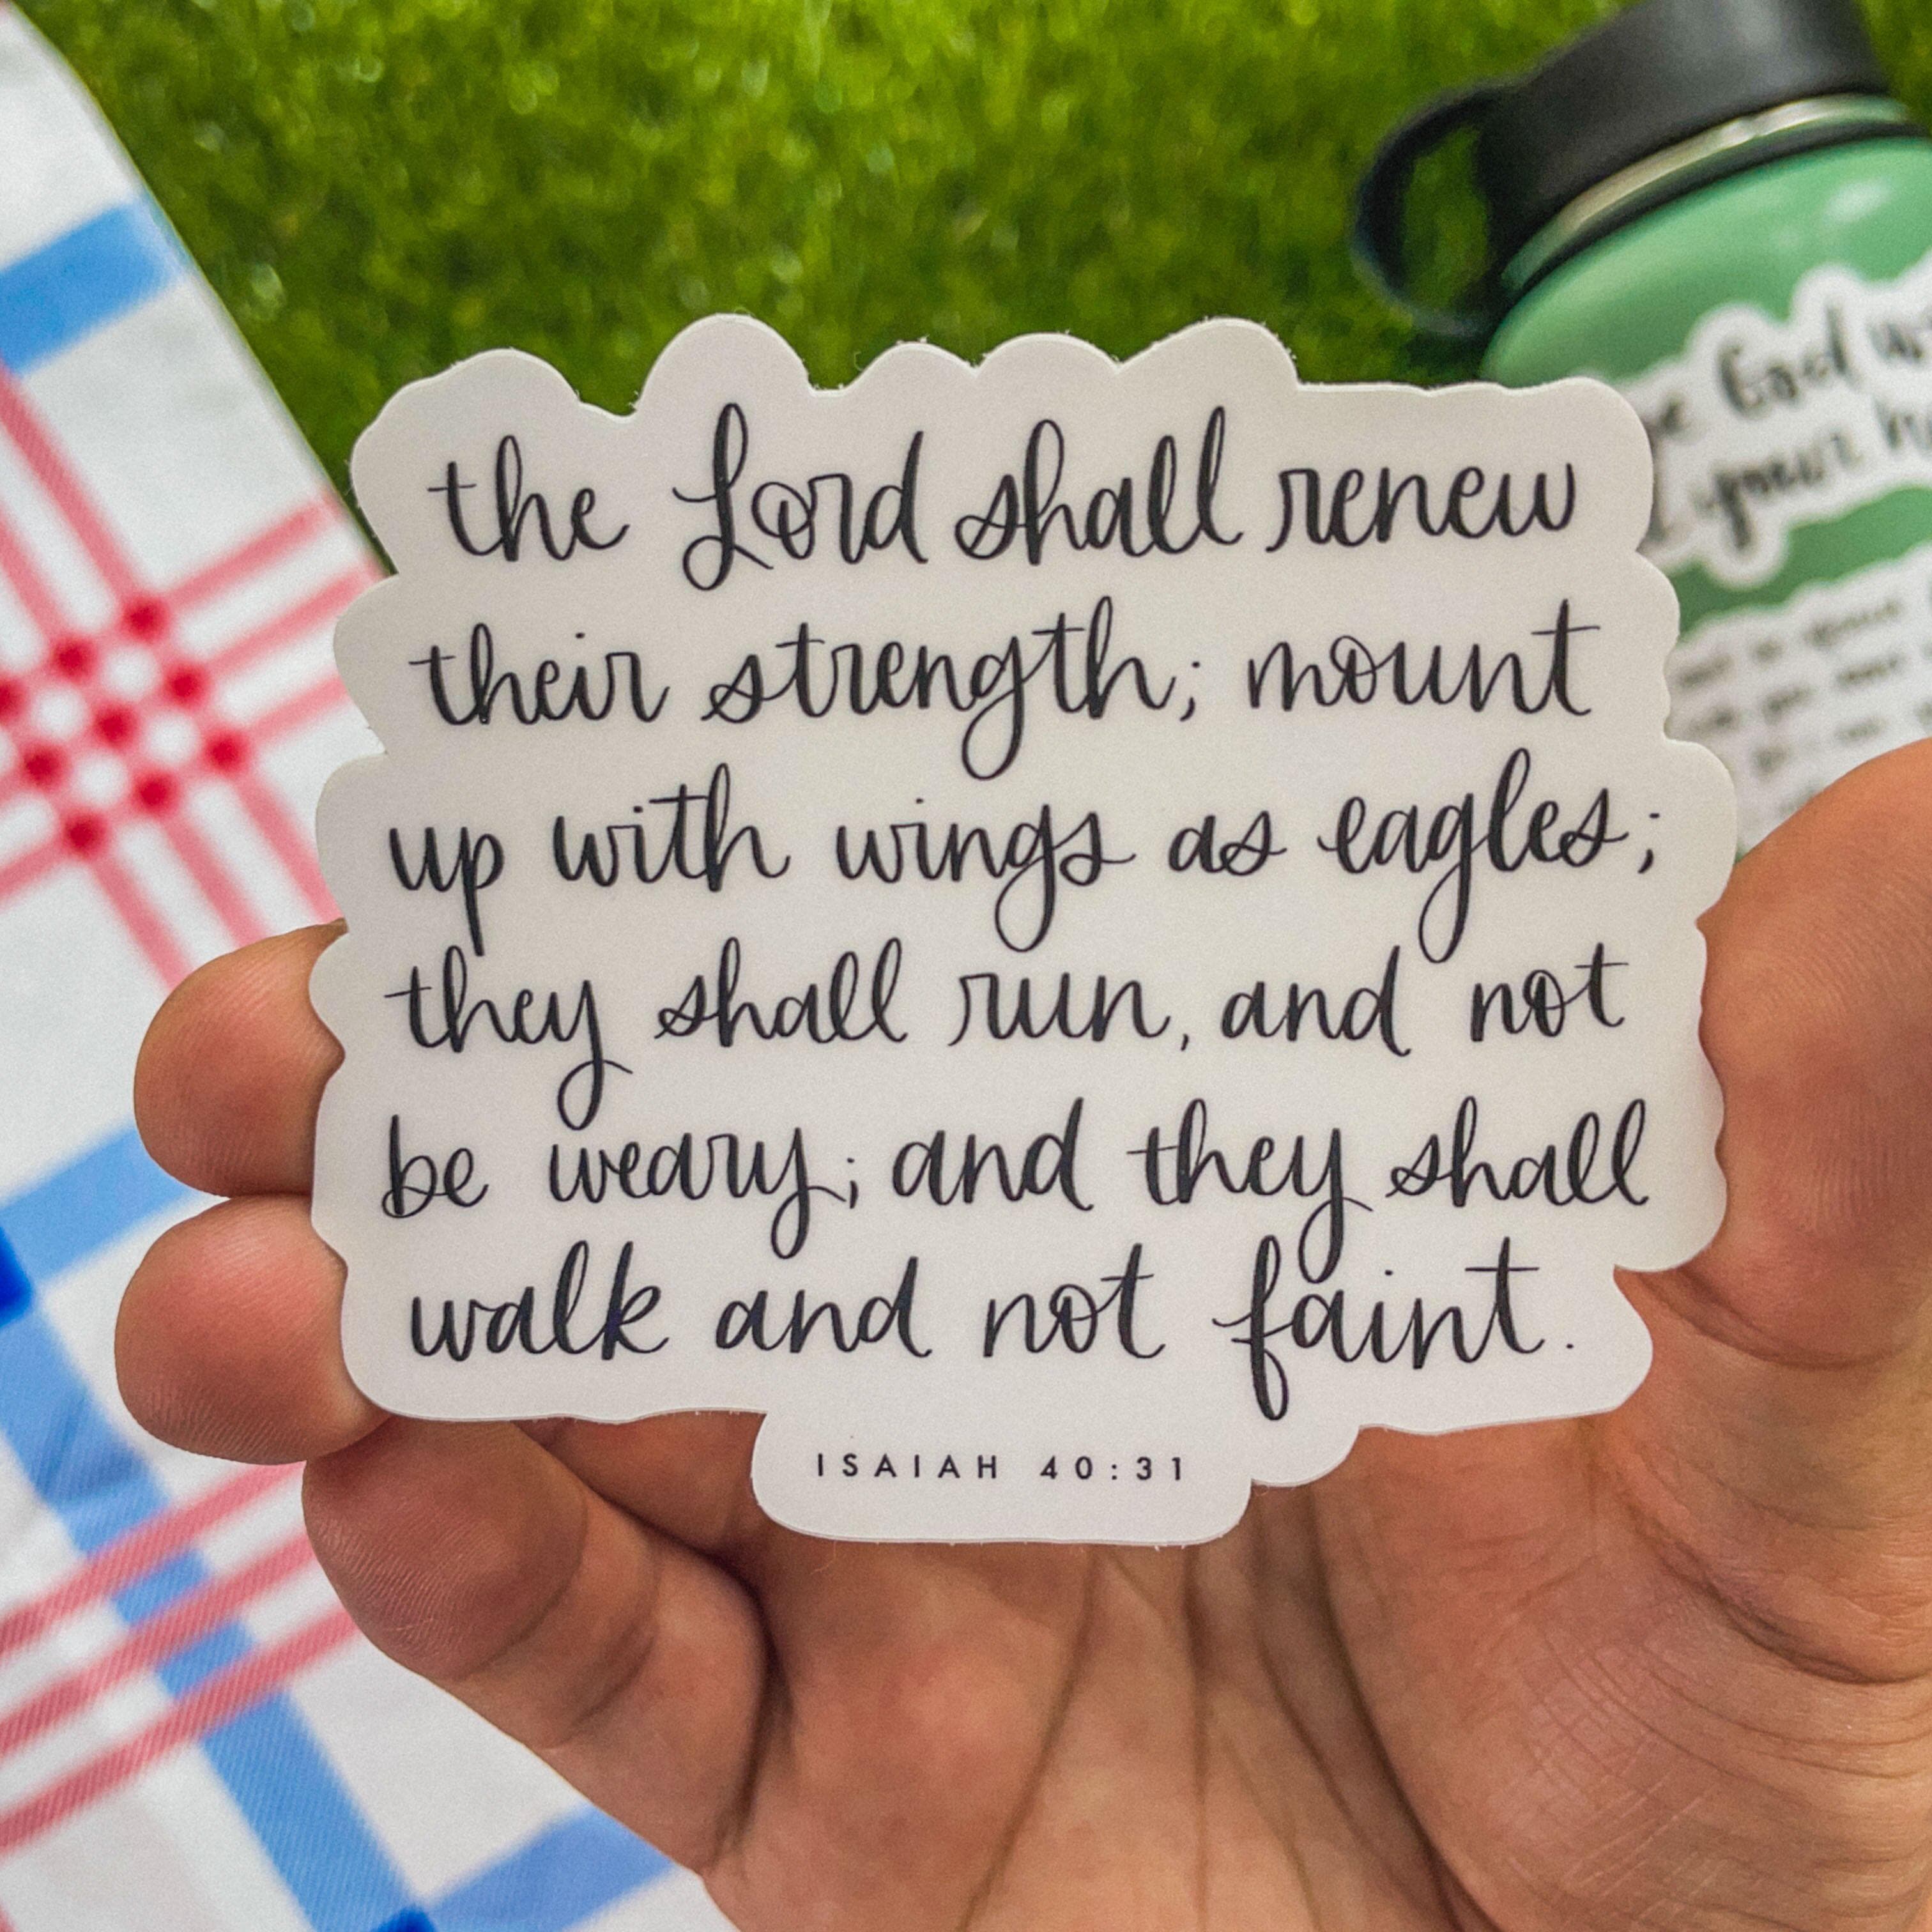 the Lord shall renew
their strength; mount
up with wings as eagles;
they shall run, and not
be weary; and they shall
walk and not faint.
ISAIAH 40:31
God
your